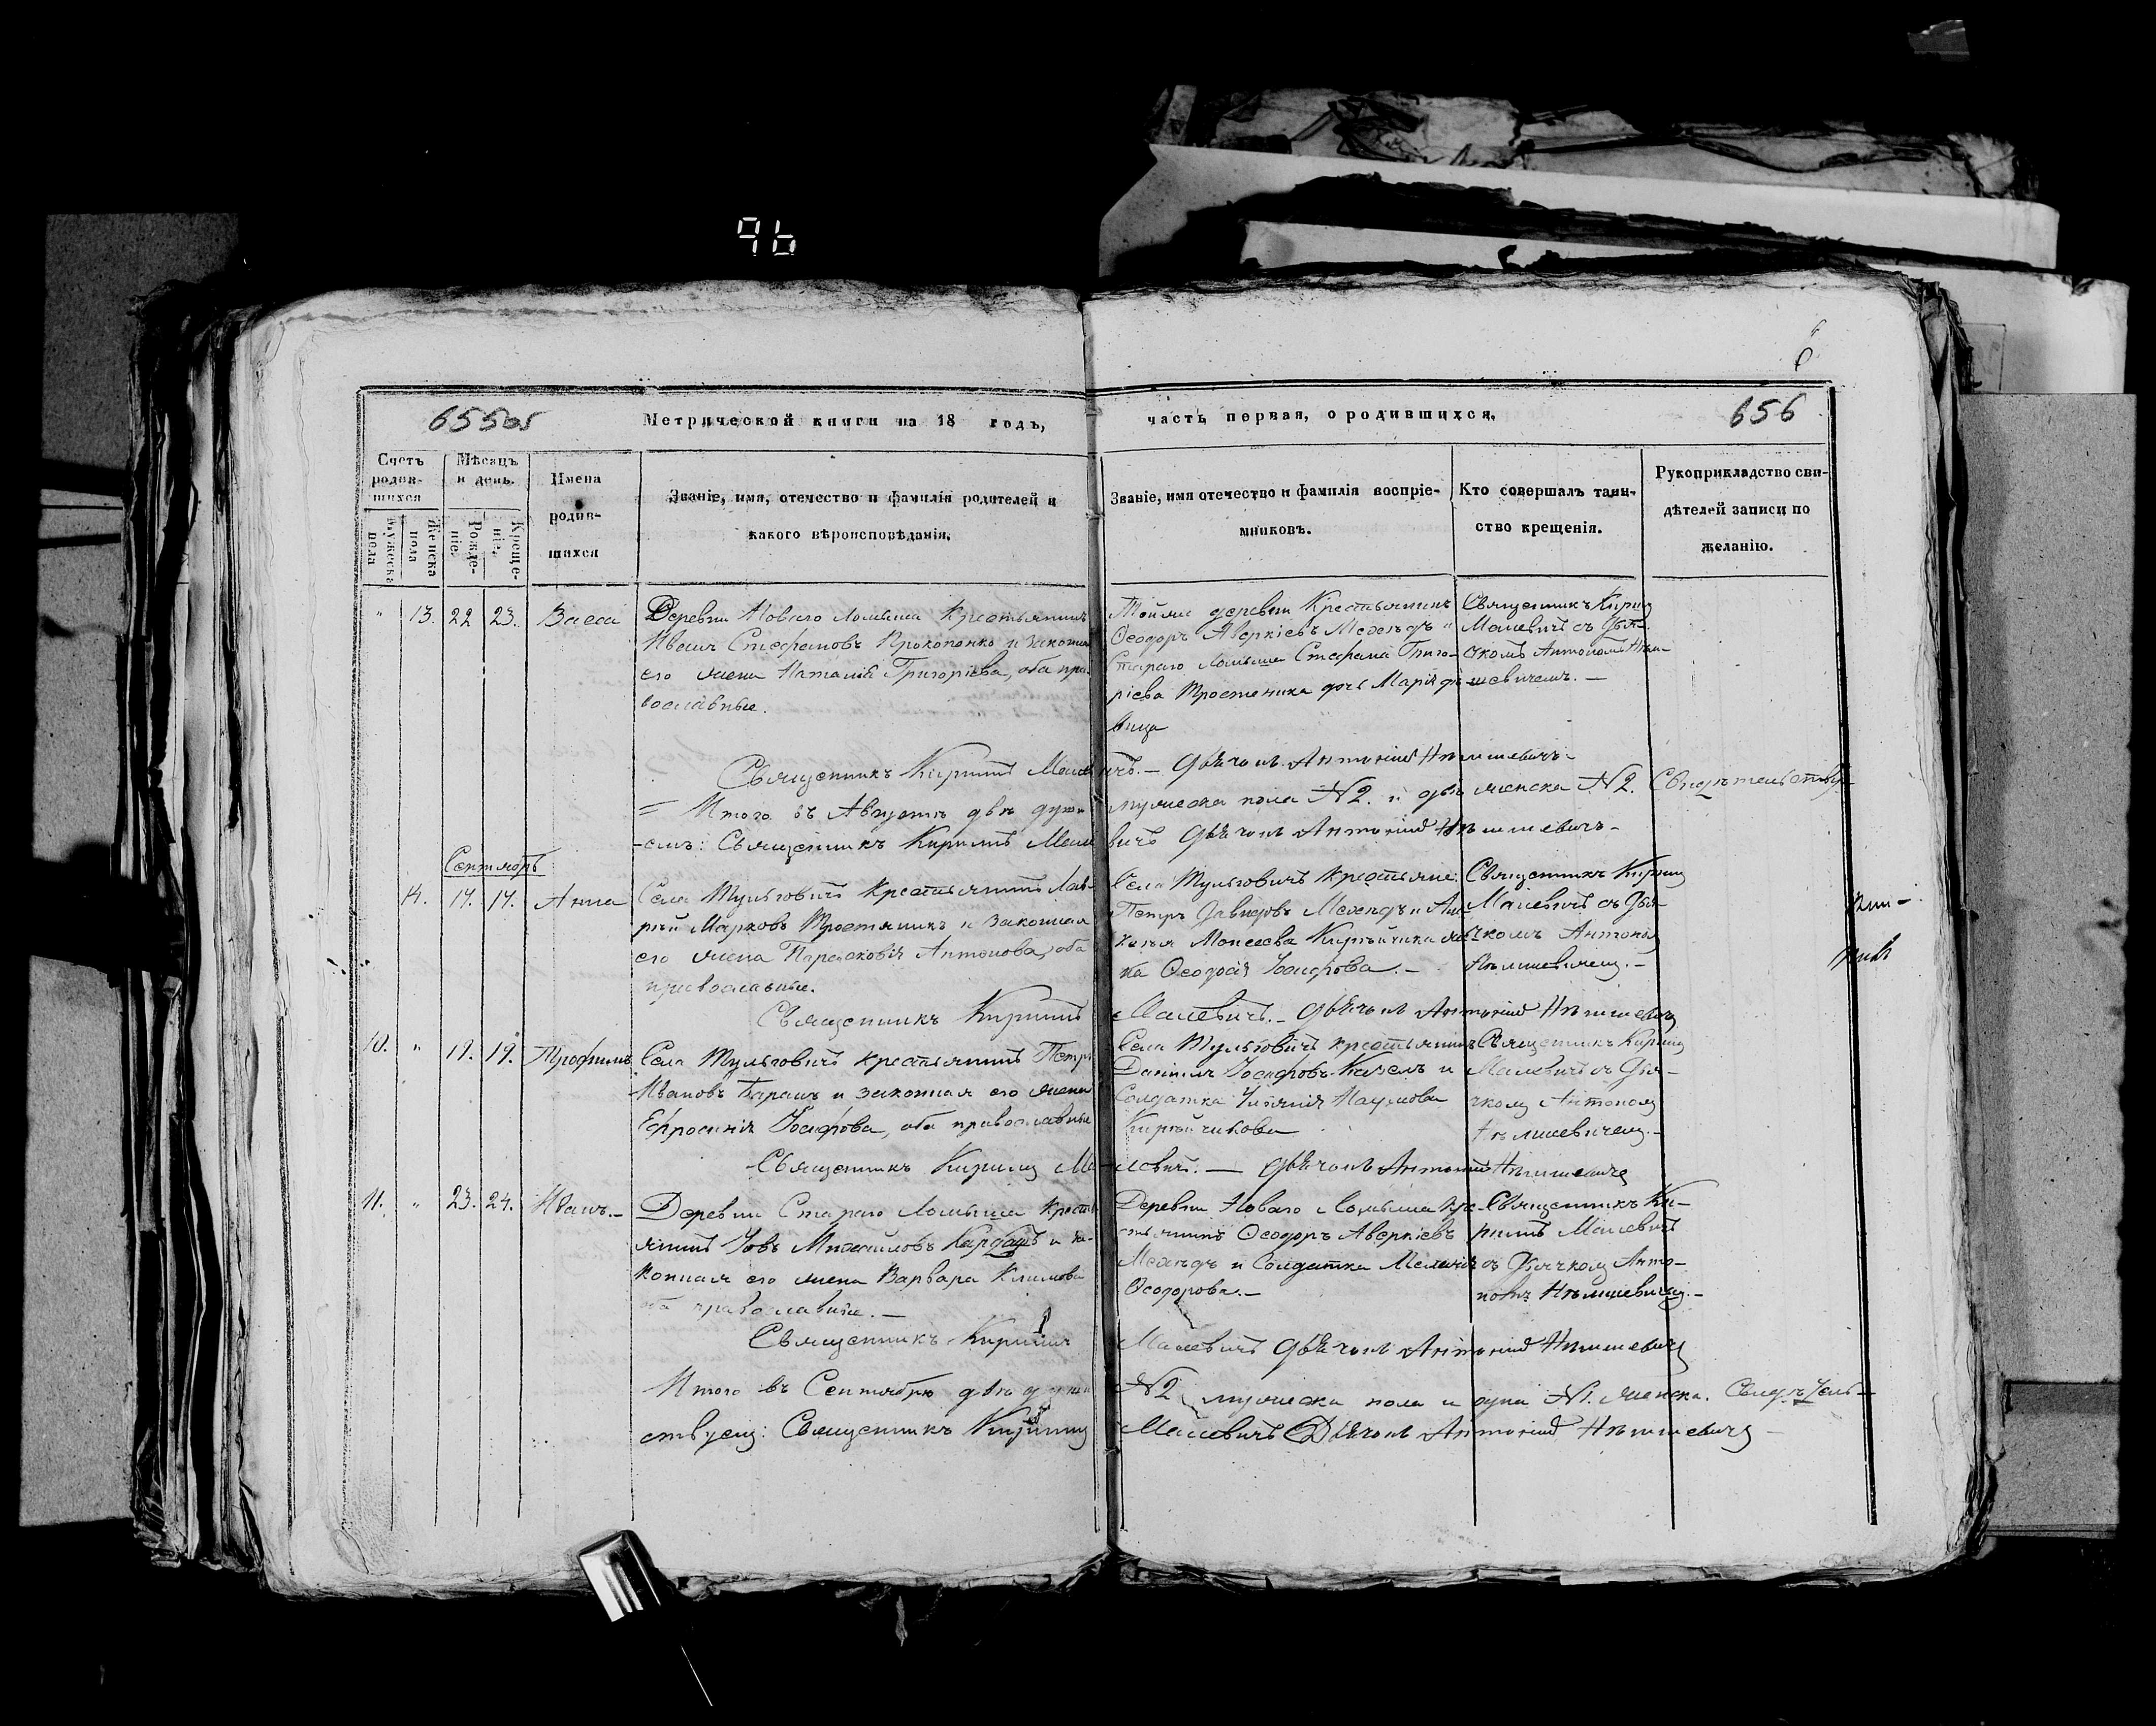 96
6
655об
Метрической книги на 18 годъ,
часть первая, о родившихся.
656
Счетъ родив-шихся
Мужеска пола
Женска пола
Мѣсяцъ и день.
Рожде-ніе.
Креще-ніе.
Имена родив-шихся
Званіе, имя, отечество и фамилія родителей и
какого вѣроисповѣданія.
Званіе, имя отечество и фамилія воспріе-
мниковъ.
Кто совершалъ таин-
ство крещенія.
Рукоприкладство сви-
дѣтелей записи по
желанію.
" 13. 22 23. Васса
Деревни Новаго Ломыша Крестьянинъ
Иванъ Стефановъ Прокопенко и законная
его жена Наталія Григоріева, оба пра-
вославные.
Тойже деревни Крестьянинъ
Ѳеодоръ Аверкіевъ Медвѣдь и
Стараго Ломыша Стефана Григо-
ріева Тростеника дочь Марія дѣ-
вица
Священникъ Кирилъ
Малевичъ съ Дья-
чкомъ Антоніемъ
Священникъ Кирилъ Малевичъ. — Дьячокъ Антоній
Итого въ Августѣ двѣ души мужеска пола №2. и двѣ женска №2. Свидѣтельству-
емъ: Священникъ Кирилъ Малевичъ Дьячокъ Антоній
Сентябрь
14. 17. 17. Анна
Села Тульговичъ Крестьянинъ Лав-
рѣй Марковъ Тростяникъ и законная
его жена Парасковія Антонова, оба
православные.
Села Тульговичъ Крестьяне:
Петръ Давидовъ Медвѣдь и
Моисеева Кирѣйчика
Ѳеодосія Іосифова. —
Священникъ Кирилъ
Малевичъ съ Дья-
чкомъ Антоніемъ
Священникъ Кирилъ Малевичъ. — Дьячокъ Антоній
10. " 19. 19. Трофимъ
Села Тульговичъ крестьянинъ Петръ
Ивановъ Баранъ и законная его жена
Ефросинія Іосифова, оба православные
Села Тульговичъ крестьянинъ
Даніилъ Іосифовъ Козелъ и
Солдатка Ульянія Наумова
Кирѣйчикова
Священникъ Кирилъ
Малевичъ съ Дья-
чкомъ Антоніемъ
Священникъ Кирилъ Малевичъ. — Дьячокъ Антоній
11. " 23. 24. Иванъ. —
Деревни Стараго Ломыша Кресть-
янинъ Іовъ Михайловъ и за-
конная его жена Варвара Климова
оба православные. —
Деревни Новаго Ломыша Кре-
стьянинъ Ѳеодоръ Аверкіевъ
Медвѣдь и Солдатка Меланія
Ѳеодорова. —
Священникъ Ки-
рилъ Малевичъ
съ Дьячкомъ Анто-
ніемъ
Священникъ Кирилъ Малевичъ Дьячокъ Антоній
Итого въ Сентябрѣ двѣ души №2 мужеска пола и одна №1. женска. Свидѣтель-
ствуемъ: Священникъ Кирилъ Малевичъ Дьячокъ Антоній